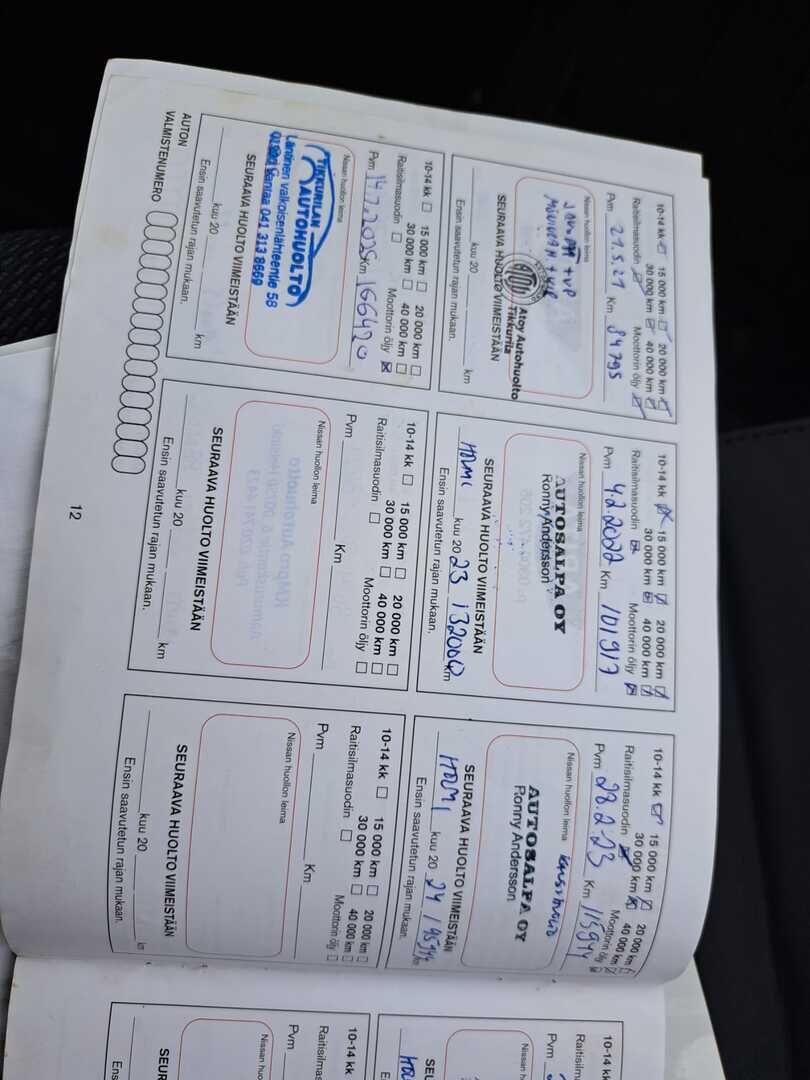 10-14 kk 15 000 km 20 000 km
30 000 km 40 000 km
Raitisilmasuodin Moottorin öljy
Pvm 21.5.21 Km 84795
Nissan huollon leima
Atoy Autohuolto
Tikkurila
SEURAAVA HUOLTO VIIMEISTÄÄN
kuu 20 km
Ensin saavutetun rajan mukaan.
10-14 kk 15 000 km 20 000 km
30 000 km 40 000 km
Raitisilmasuodin Moottorin öljy
Pvm 4.2.2022 Km 101917
Nissan huollon leima
AUTOSALPA OY
Ronny Andersson
SEURAAVA HUOLTO VIIMEISTÄÄN
kuu 20 23 132000 km
Ensin saavutetun rajan mukaan.
10-14 kk 15 000 km 20 000 km
30 000 km 40 000 km
Raitisilmasuodin Moottorin öljy
Pvm 28.2.23 Km 115944
Nissan huollon leima
AUTOSALPA OY
Ronny Andersson
SEURAAVA HUOLTO VIIMEISTÄÄN
kuu 20 24 km
Ensin saavutetun rajan mukaan.
10-14 kk 15 000 km 20 000 km
30 000 km 40 000 km
Raitisilmasuodin Moottorin öljy
Pvm 14.7.2025 Km 166420
Nissan huollon leima
TIKKURILAN
AUTOHUOLTO
Läntinen valkoisenlähteentie 58
Vantaa 041 313 8669
SEURAAVA HUOLTO VIIMEISTÄÄN
kuu 20 km
Ensin saavutetun rajan mukaan.
10-14 kk 15 000 km 20 000 km
30 000 km 40 000 km
Raitisilmasuodin Moottorin öljy
Pvm Km
Nissan huollon leima
SEURAAVA HUOLTO VIIMEISTÄÄN
kuu 20 km
Ensin saavutetun rajan mukaan.
10-14 kk 15 000 km 20 000 km
30 000 km 40 000 km
Raitisilmasuodin Moottorin öljy
Pvm Km
Nissan huollon leima
SEURAAVA HUOLTO VIIMEISTÄÄN
kuu 20
Ensin saavutetun rajan mukaan.
AUTON
VALMISTENUMERO
12
10-14 kk
Pvm
10-14 kk
Pvm